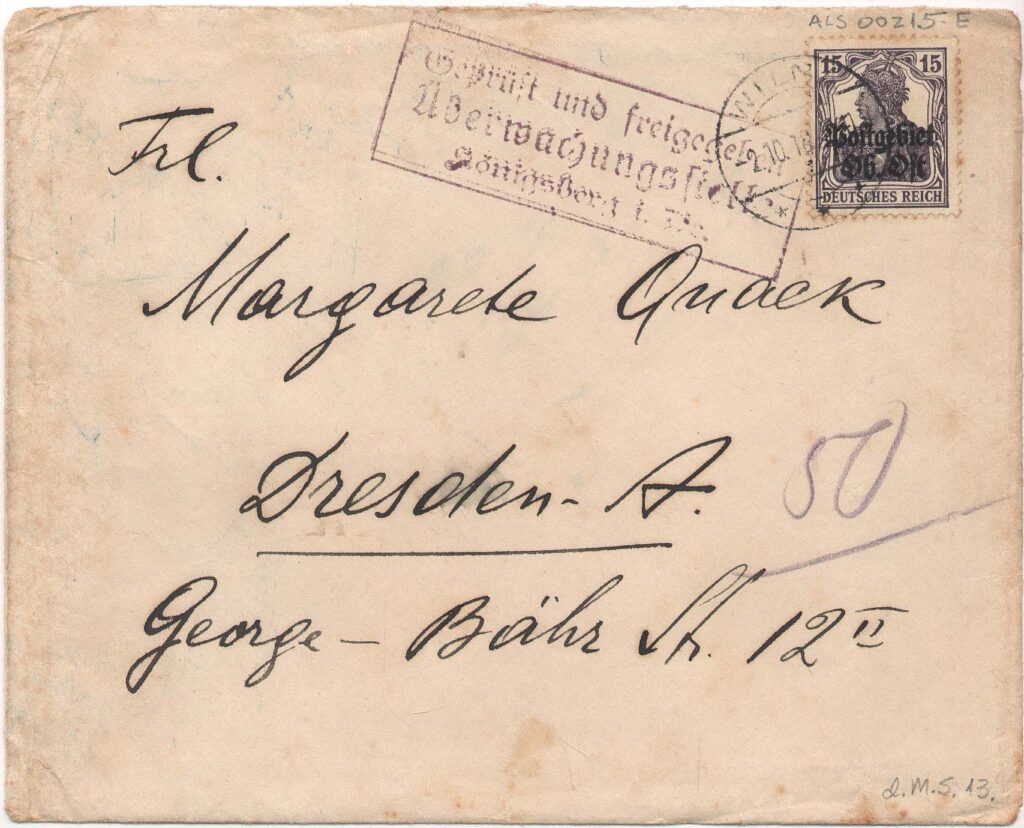 ALS 00215-E
15 15
Postgebiet
Ob. Ost
DEUTSCHES REICH
2.10.18
Geprüft und freigegeb
Überwachungsstelle
Königsberg i. Pr.
Frl.
Margarete Quack
Dresden-A.
50
George-Bähr Str. 12 II